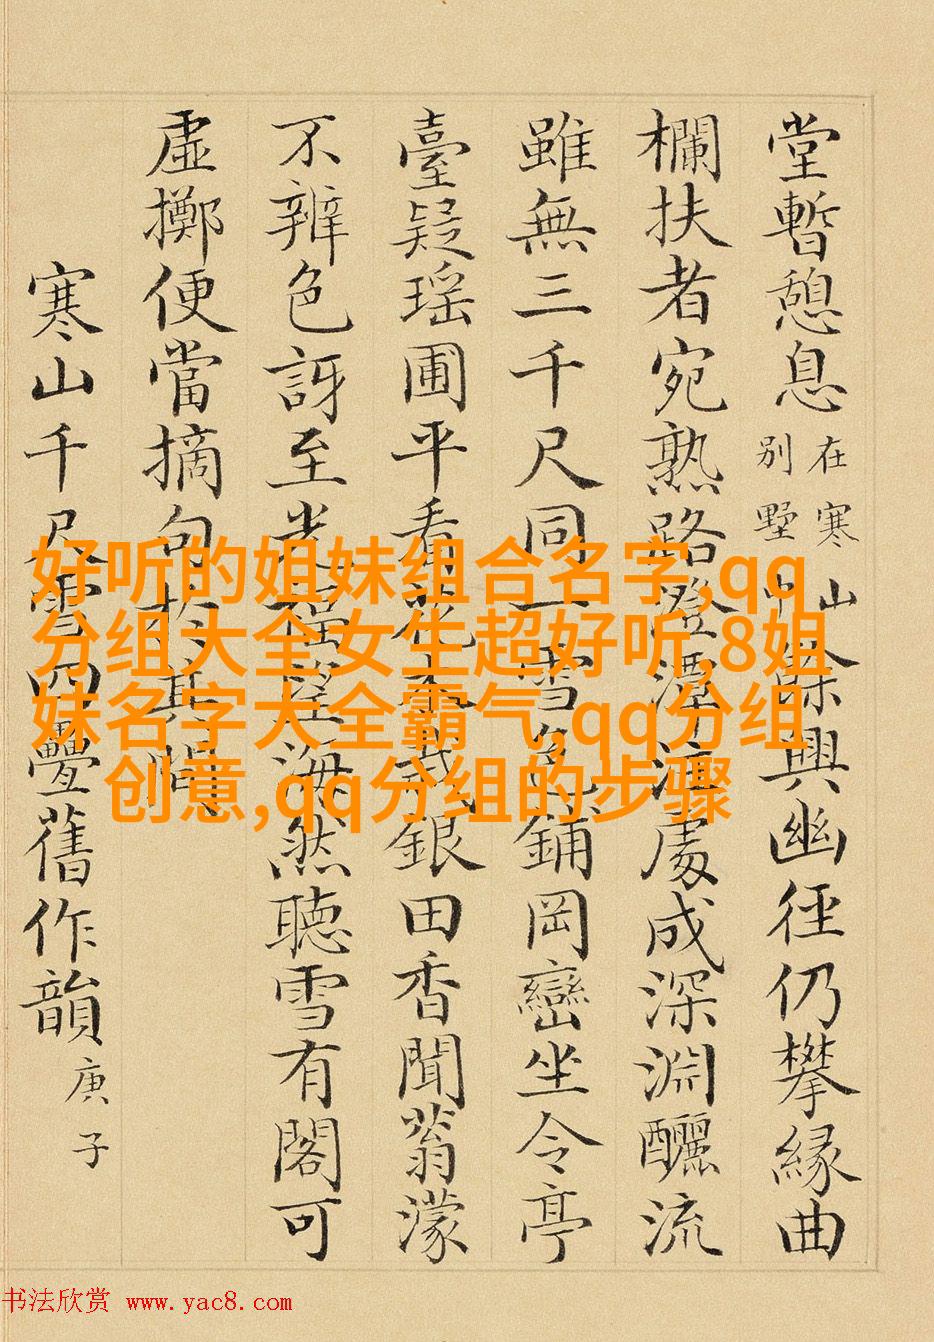 堂暫憩息在寒山別墅中餘興幽徑仍攀緣曲
欄扶者宛熟路澄潭注處成深淵釃流
雖無三千尺同一雪色鋪岡巒坐令亭
臺疑瑤圃平看花木銀田香聞蓊濛
不辨色訝至海然聽雪有閣可
虛擲便當摘句於其間
寒山千尺雪四疊舊作韻庚子
好听的姐妹组合名字,qq
分组大全女生超好听,8姐
妹名字大全霸气,qq分组
创意,qq分组的步骤
书法欣赏 www.yac8.com